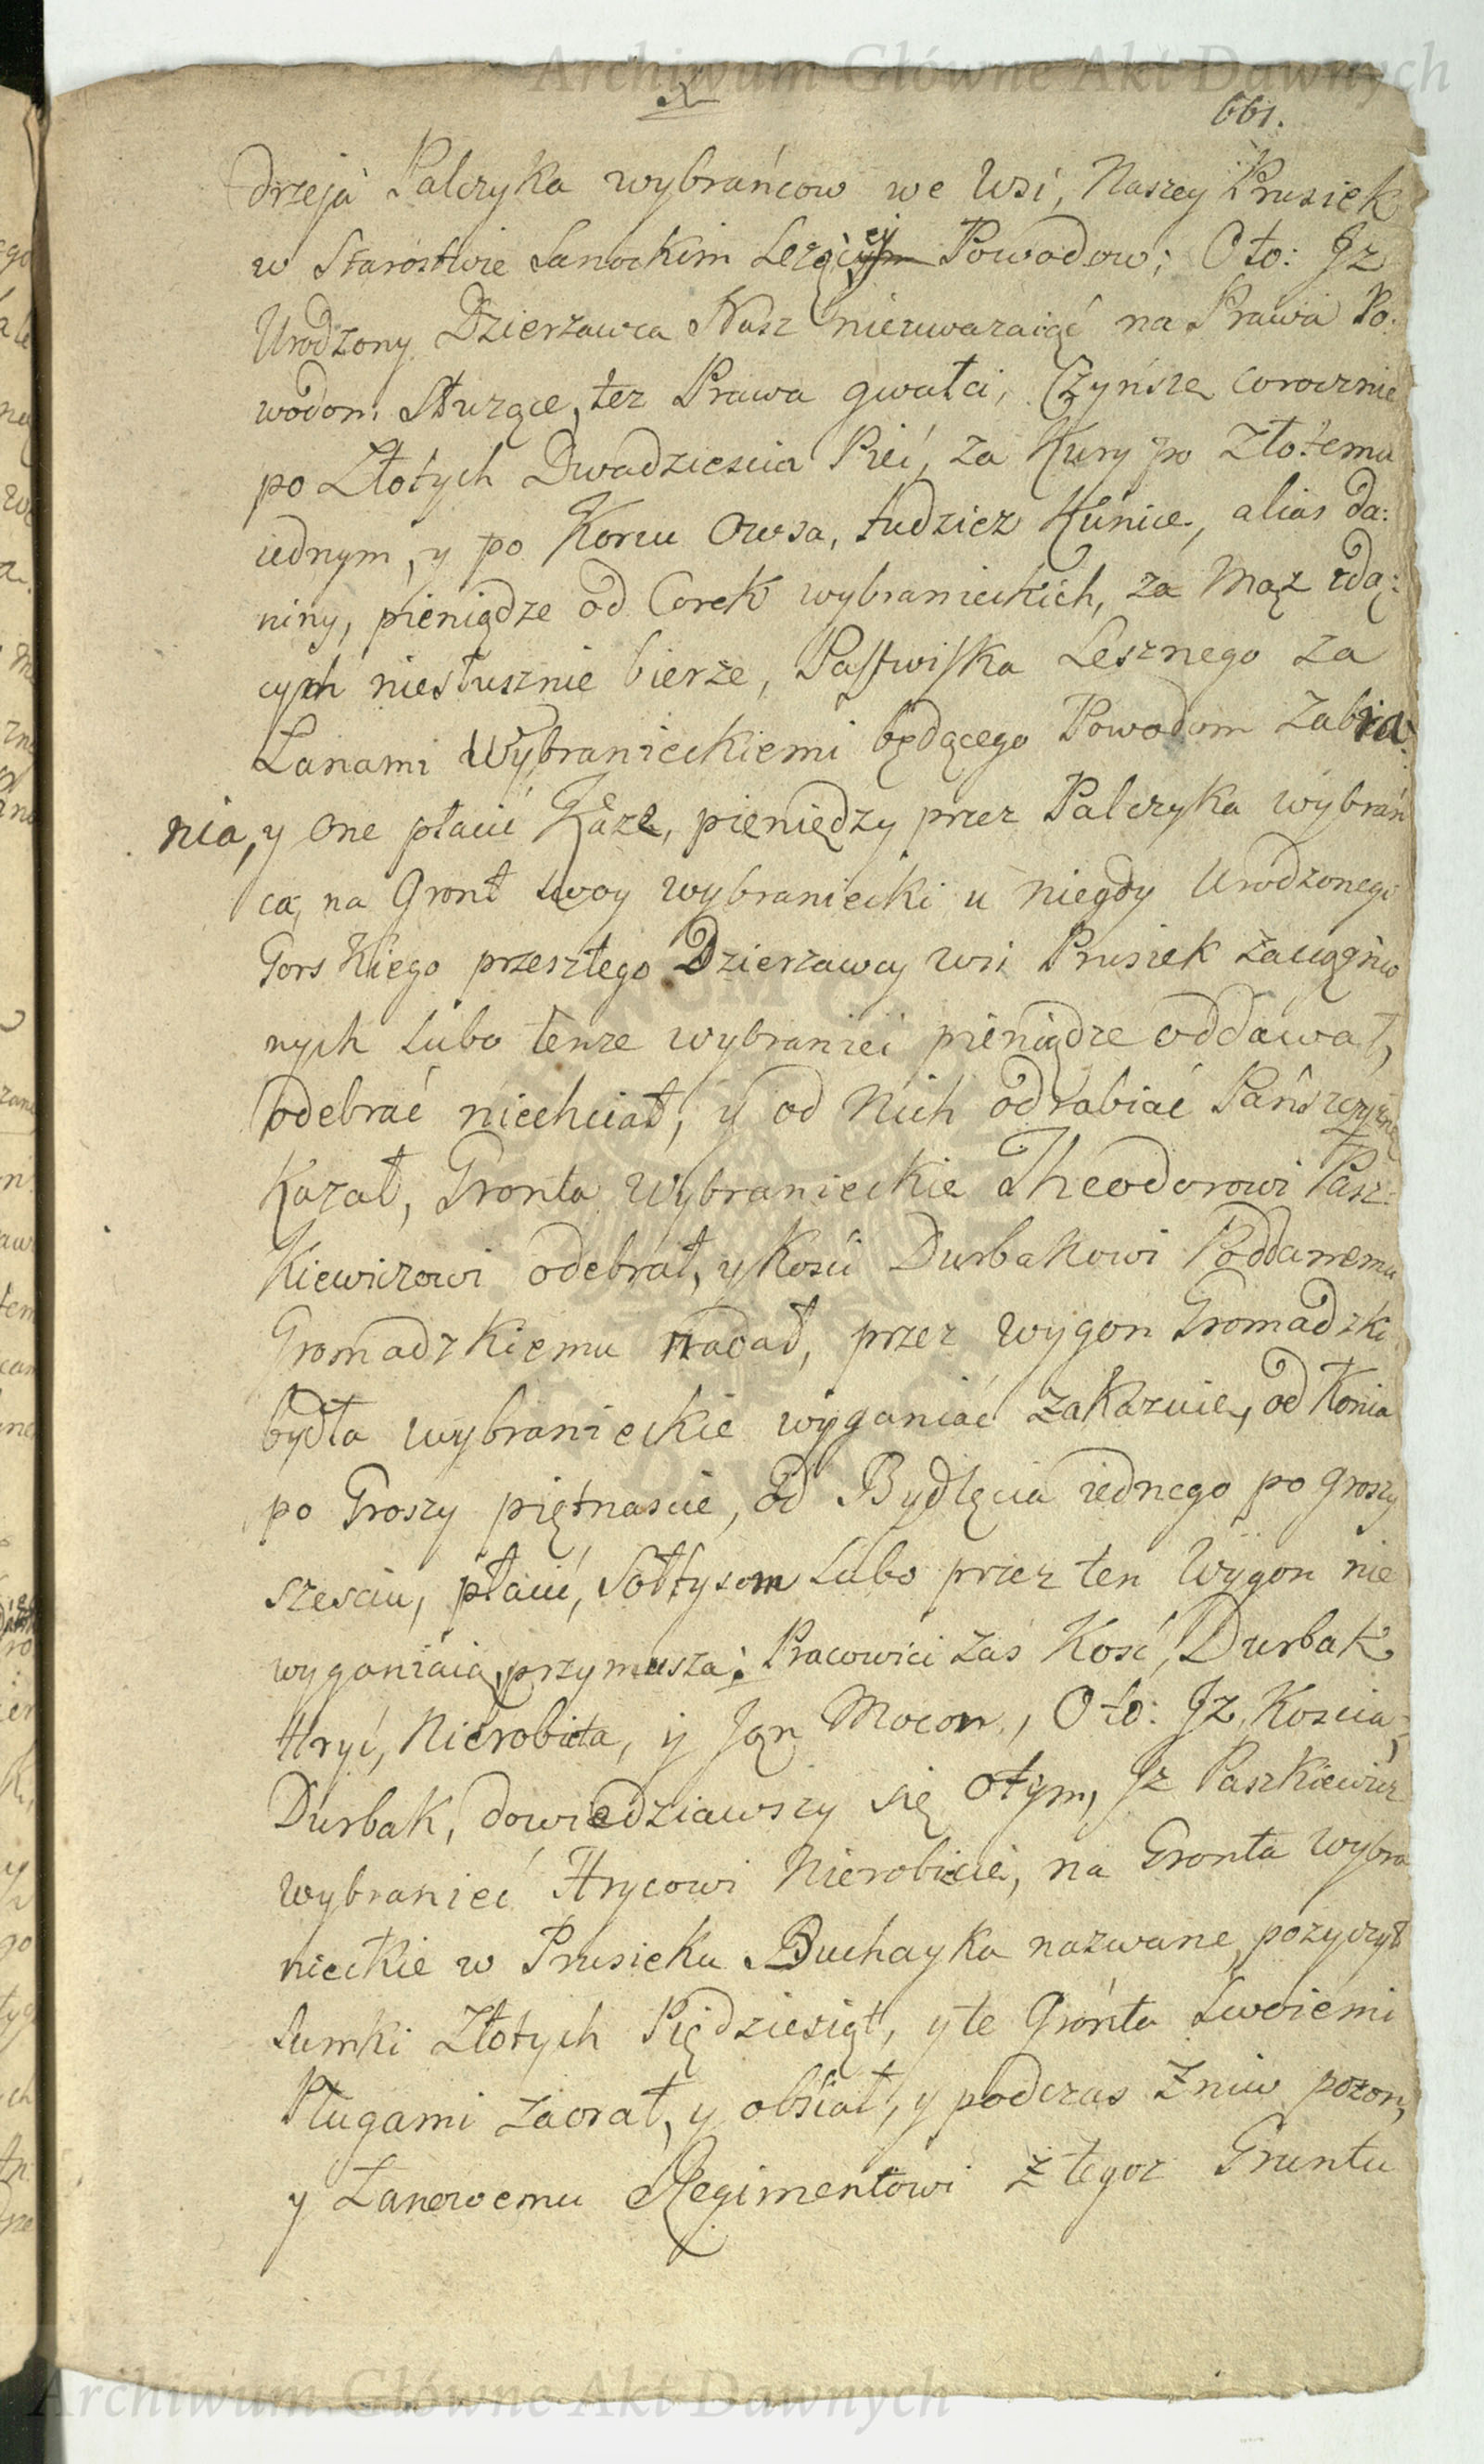 Archiwum Główne Akt Dawnych
661.
drzeja Palczyka wybrańcow we Wsi, Naszey Prusiek
w Starostwie Sanockim Lezącey Powodow; Oto: Jz
Urodzony Dzierzawca Nasz niezuwazaiąć na Prawa Po:
wodom Słuzące, tez Prawa gwałci, Czynsze corocznie
po Złotych Dwadziescia Pieć, za Kury po Złotemu
iednym, y po Korcu Owsa, tudziez Kunice, alias da:
niny, pieniądze od Corek wybranieckich, za Mąz idą:
cych niesłusznie bierze, Pastwiska Lesznego za
Łanami Wybranieckiemi będącego Powodom zabra:
nia, y one płacić Kaze, pieniędzy przez Palczyka wybrań
ca, na Gront swoy wybraniecki u niegdy Urodzonego
Gorskiego przeszłego Dzierzawcy wsi Prusiek zaciągnio
nych lubo tenze wybraniec pieniądze oddawał,
odebrać niechciał, y od Nich odrabiać Pańszczyznę
Kazał, Gronta Wybranieckie Theodorowi Pasz:
Kiewiczowi odebrał, y Kosci Durbakowi Poddannemu
Gromadzkiemu nadał, przez wygon Gromadzki
bydła wybranieckie wyganiać zakazuie, od Konia
po Groszy piętnascie, od Bydlęcia iednego po groszy
szesciu, płacić, Sołtysom lubo przez ten Wygon nie
wyganiaią, przymusza; Pracowici zas Kosć, Durbak
Hryć, Nierobieta, y Jan Mocon, Oto: Jz Koscia,
Durbak, dowiedziawszy się otym, Jz Paszkiewicz
wybranieć Hrycowi Nierobiecie, na Gronta wybra
nieckie w Prusieku Buchayka nazwane, pozyczył
Sumki Złotych Piędziesiąt, y te Gronta Swoiemi
Pługami zaorał, y obsiał, y podczas Zniw pozon,
y Łanowemu Regimentowi z tegoz Gruntu
Archiwum Główne Akt Dawnych